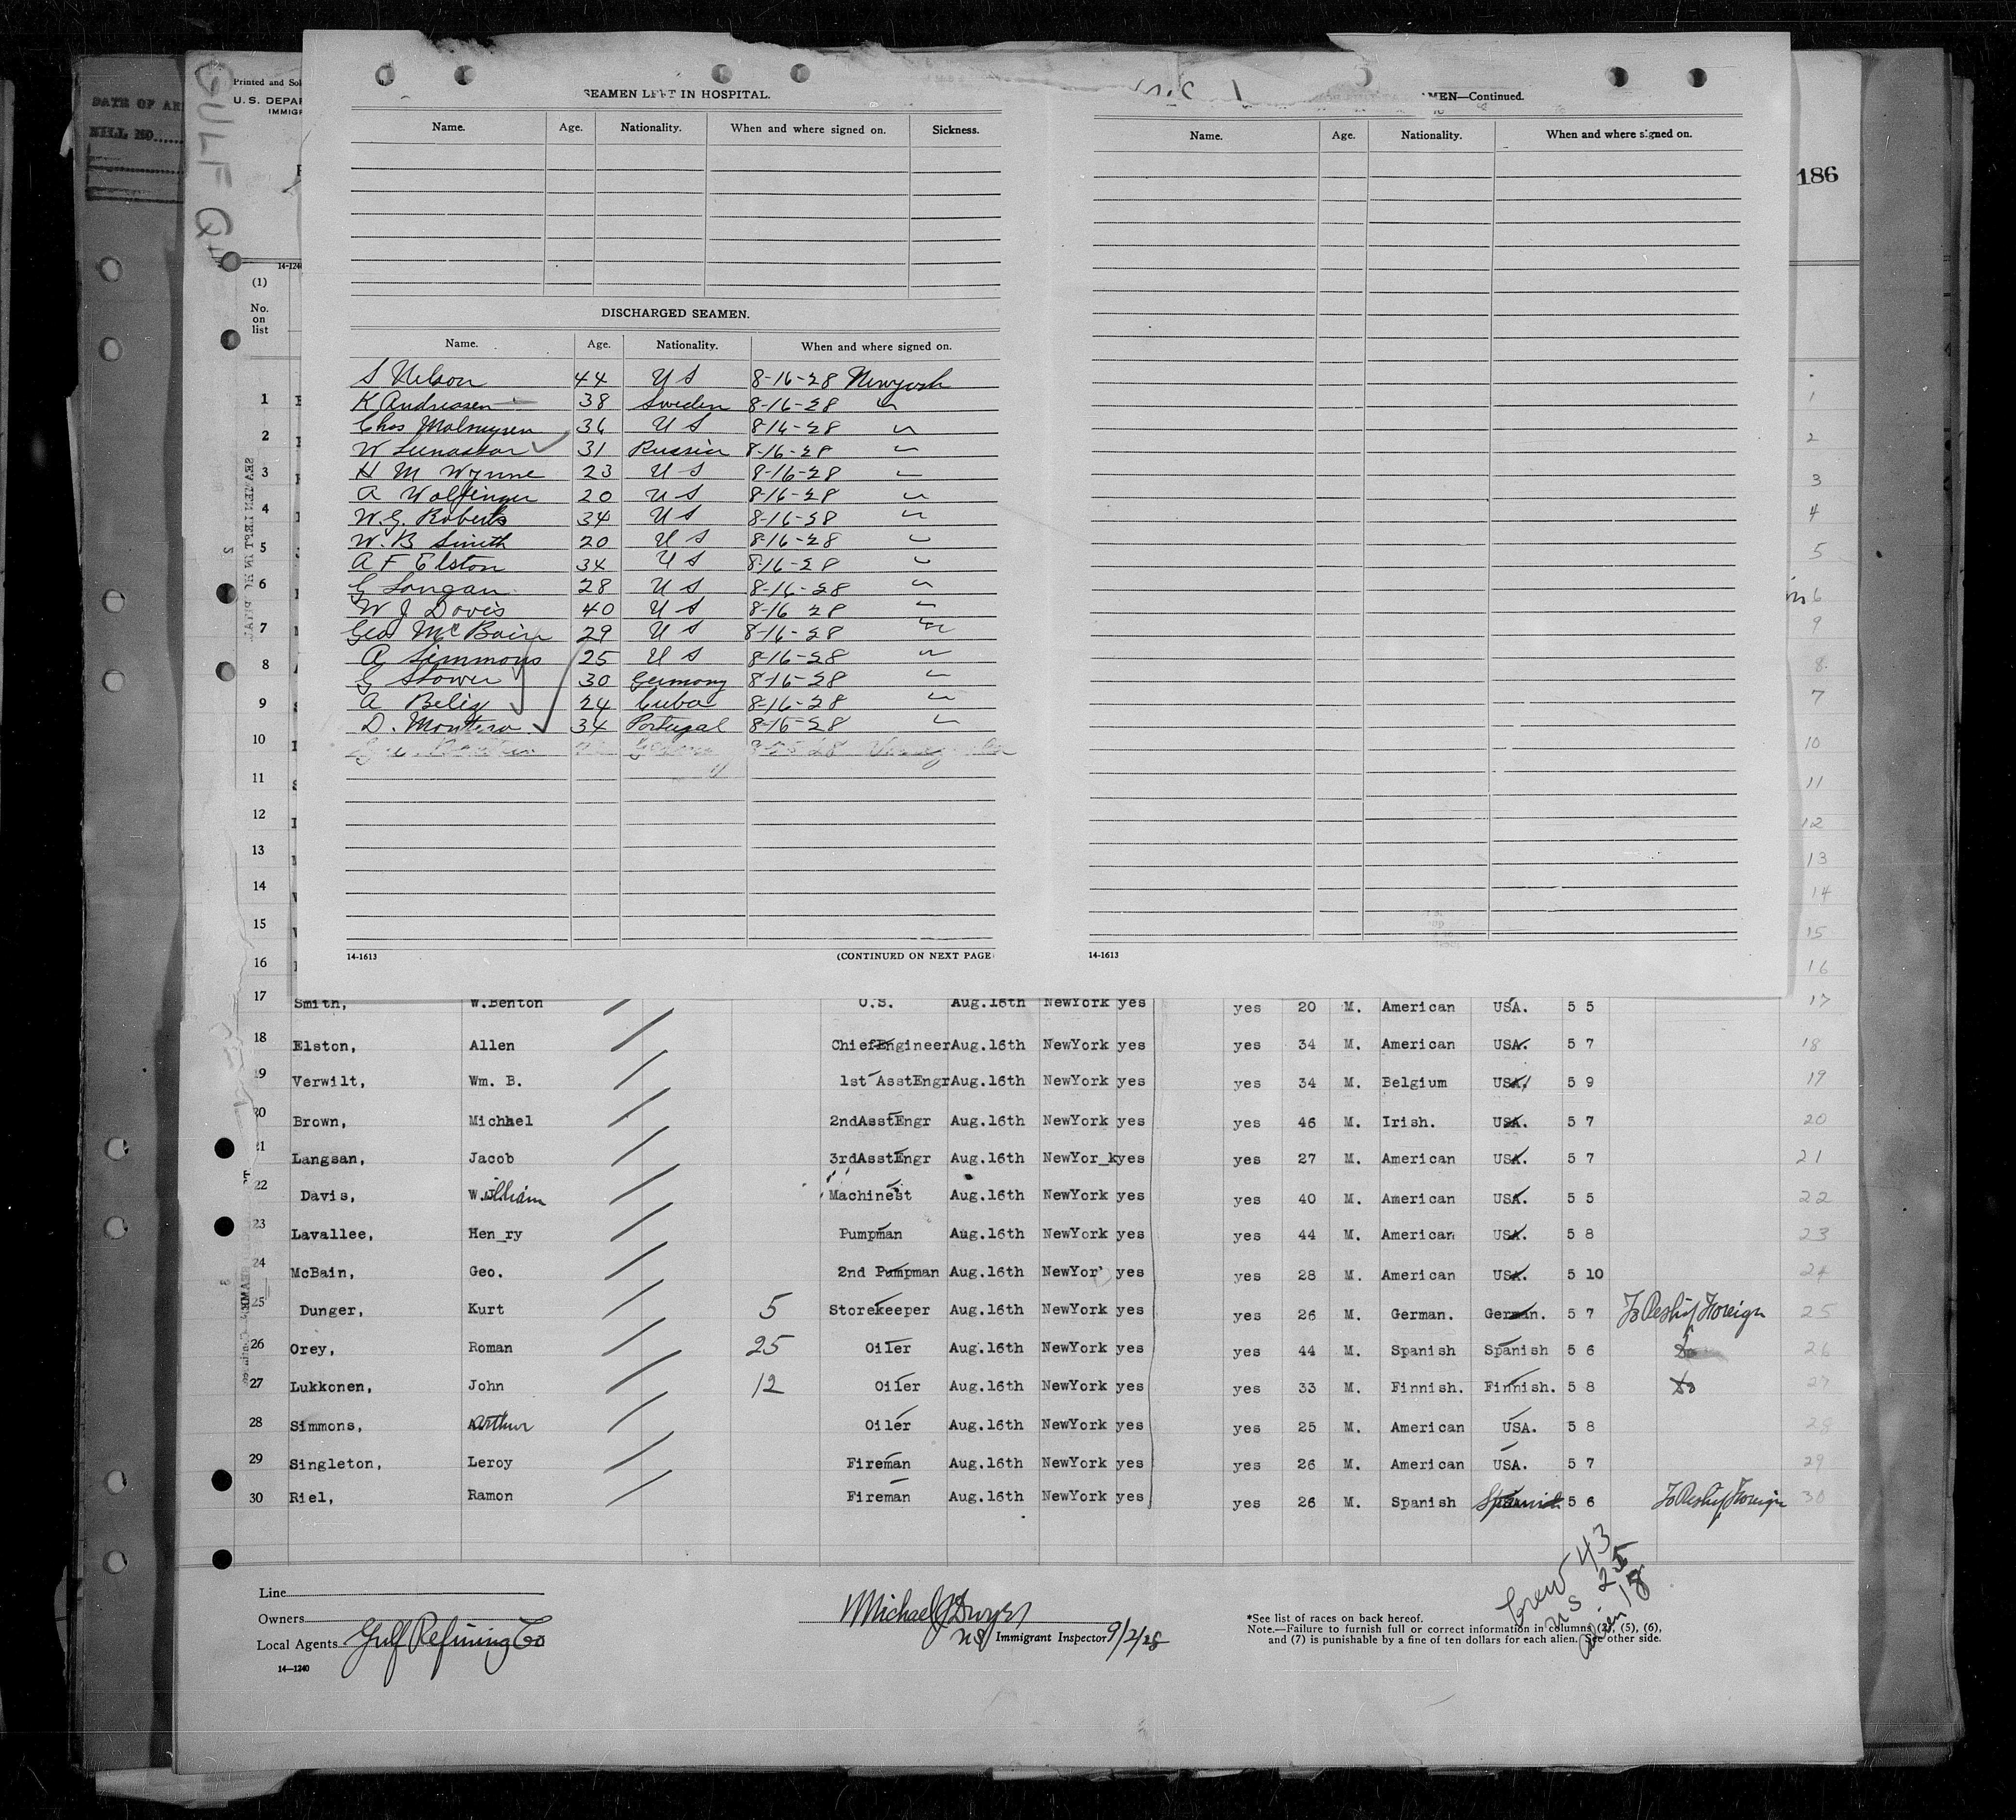 DATE OF AR
BILL NO.
Printed and Sol
U. S. DEPAR
IMMIGR
186
14-1240
(1)
No.
on
list
SEAMEN LEFT IN HOSPITAL.
Name. Age. Nationality. When and where signed on. Sickness.
DISCHARGED SEAMEN.
Name. Age. Nationality. When and where signed on.
S Nelson 44 US 8-16-28 Newyork
K Andreasen 38 Sweden 8-16-28 "
Chas 36 US 8-16-28 "
W 31 Russia 8-16-28 "
H M Wynne 23 US 8-16-28 "
A Wolfinger 20 US 8-16-28 "
W.G. Roberts 34 US 8-16-28 "
W.B Smith 20 US 8-16-28 "
A F Elston 34 US 8-16-28 "
G Langan 28 US 8-16-28 "
W J Davis 40 US 8-16 28 "
Geo McBain 29 US 8-16-28 "
A Simmons 25 US 8-16-28 "
G Stower 30 Germany 8-16-28 "
A 24 Cuba 8-16-28 "
D. Montero 34 Portugal 8-16-28 "
14-1613 (CONTINUED ON NEXT PAGE
MEN—Continued.
Name. Age. Nationality. When and where signed on.
14-1613
1
2
3
4
5
6
7
8
9
10
11
12
13
14
15
16
17 Smith, W.Benton O.S. Aug.16th NewYork yes yes 20 M. American USA. 5 5 17
18 Elston, Allen ChiefEngineer Aug.16th NewYork yes yes 34 M. American USA. 5 7 18
19 Verwilt, Wm. B. 1st AsstEngr Aug.16th NewYork yes yes 34 M. Belgium USA. 5 9 19
20 Brown, Michael 2ndAsstEngr Aug.16th NewYork yes yes 46 M. Irish. USA. 5 7 20
21 Langsan, Jacob 3rdAsstEngr Aug.16th NewYor_k yes yes 27 M. American USA. 5 7 21
22 Davis, William Machinest Aug.16th NewYork yes yes 40 M. American USA. 5 5 22
23 Lavallee, Hen_ry Pumpman Aug.16th NewYork yes yes 44 M. American USA. 5 8 23
24 McBain, Geo. 2nd Pumpman Aug.16th NewYor' yes yes 28 M. American USA. 5 10 24
25 Dunger, Kurt 5 Storekeeper Aug.16th NewYork yes yes 26 M. German. German. 5 7 To Reship Foreign 25
26 Orey, Roman 25 Oiler Aug.16th NewYork yes yes 44 M. Spanish Spanish 5 6 Do 26
27 Lukkonen, John 12 Oiler Aug.16th NewYork yes yes 33 M. Finnish. Finnish. 5 8 Do 27
28 Simmons, Arthur Oiler Aug.16th NewYork yes yes 25 M. American USA. 5 8 28
29 Singleton, Leroy Fireman Aug.16th NewYork yes yes 26 M. American USA. 5 7 29
30 Riel, Ramon Fireman Aug.16th NewYork yes yes 26 M. Spanish Spanish 5 6 To Reship Foreign 30
Crew 43
US 25
Alien 18
Line
Owners
Local Agents Gulf Refining Co
14—1240
Michael J Dwyer
US Immigrant Inspector 9/2/28
*See list of races on back hereof.
Note.—Failure to furnish full or correct information in columns (2), (5), (6),
and (7) is punishable by a fine of ten dollars for each alien. See other side.